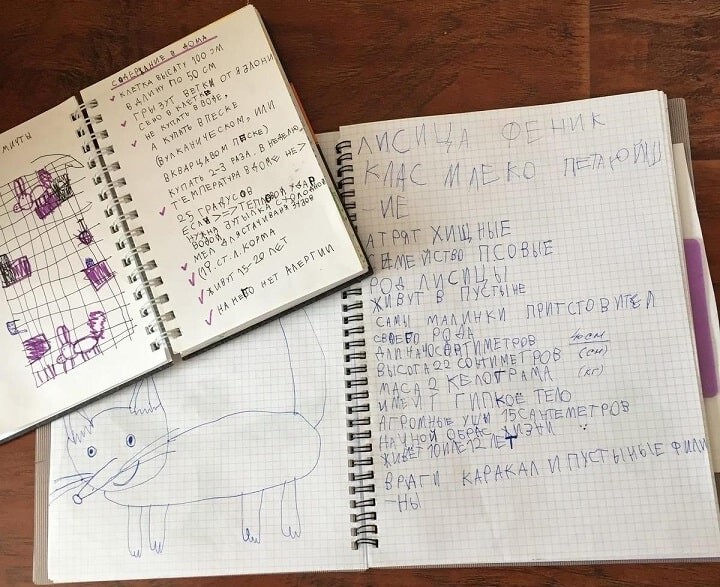 МИЧТЫ
СОДЕРЖАНИЕ В ДОМА
КЛЕТКА ВЫСАТУ 100 СМ
В ДЛИНУ ПО 50 СМ
ГРЫЗУТ ВЕТКИ ОТ ЯБЛОНИ
СЕНО В КЛЕТКЕ
НЕ КУПАТЬ В ВОДЕ,
А КУПАТЬ В ПЕСКЕ
(ВУЛКАНИЧЕСКОМ, ИЛИ
КВАРЦАВОМ ПЕСКЕ)
КУПАТЬ 2-3 РАЗА В НЕДЕЛЮ
ТЕМПЕРАТУРА В ДОМЕ НЕ >
25 ГРАДУСОВ
ЕСЛИ >=> ТЕПЛОВОЙ УДАР
НУЖНА БУТЫЛКА С ХОЛОДНОЙ
ВОДОЙ
МЕЛ ДЛЯ СТАЧИВАНИЯ ЗУБОВ
1 СТ. Л. КОРМА
ЖИВУТ 15-20 ЛЕТ
НА НЕГО НЕТ АЛЕРГИИ
ЛИСИЦА ФЕНИК
КЛАС МЛЕКО ПЕТАЮЩ
ИЕ
АТРЯТ ХИЩНЫЕ
СЕМЕЙСТВО ПСОВЫЕ
РОД ЛИСИЦЫ
ЖИВУТ В ПУСТЫНЕ
САМЫ МАЛИНКИ ПРИТСТОВИТЕЛ
СВОЕГО РОДА
ДЛИНА 40 САНТИМЕТРОВ 40 СМ
ВЫСОТА 22 СОНТИМЕТРОВ (СМ)
МАСА 2 КЕЛОГРАМА (КГ)
ИМЕИТ ГИПКОЕ ТЕЛО
АГРОМНЫЕ УШЫ 15 САНТЕМЕТРОВ
НАЧНОЙ ОБРАС ЖИЗНИ
ЖИВЕТ 10 ИЛЕ 12 ЛЕТ
ВРАГИ КАРАКАЛ И ПУСТЫНЫЕ ФИЛИ
-НЫ